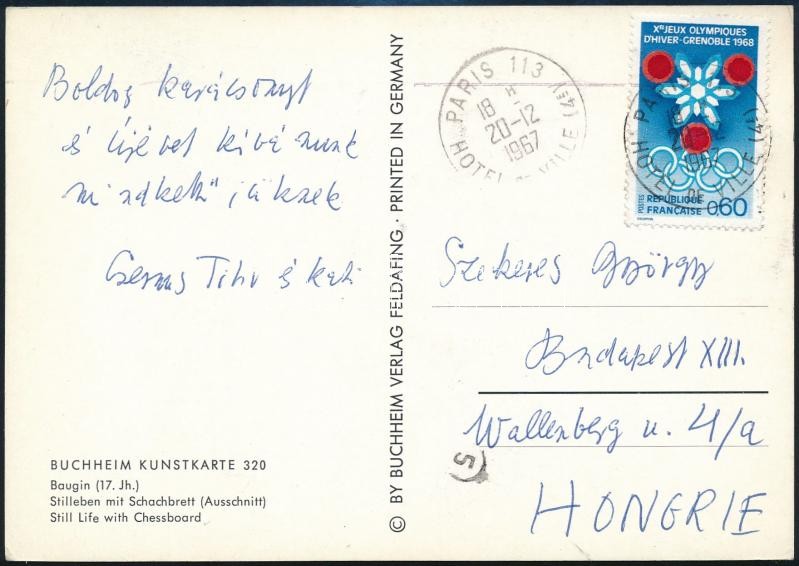 Boldog karácsonyt
és újévet kívánunk
mindkettőjüknek
Czernus Tibor és Kati
BUCHHEIM KUNSTKARTE 320
Baugin (17. Jh.)
Stilleben mit Schachbrett (Ausschnitt)
Still Life with Chessboard
© BY BUCHHEIM VERLAG FELDAFING · PRINTED IN GERMANY
PARIS 113 (4E)
18 H
20-12
1967
HOTEL DE VILLE
XES JEUX OLYMPIQUES
D'HIVER-GRENOBLE 1968
POSTES
RÉPUBLIQUE
FRANÇAISE
0,60
Szekeres György
Budapest XIII.
Wallenberg u. 4/a
HONGRIE
5